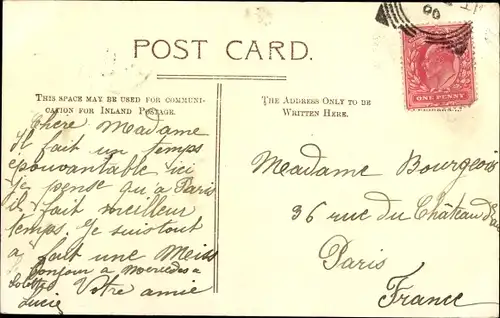 POST CARD.
THIS SPACE MAY BE USED FOR COMMUNI-
CATION FOR INLAND POSTAGE.
THE ADDRESS ONLY TO BE
WRITTEN HERE.
ONE PENNY
Chère Madame
il fait un temps
épouvantable ici
je pense qu'a Paris
il fait meilleur
temps. Je suis tout
a fait une Meiss
Bonjour a Mercedes a
Lolotte Votre amie
Lucie
Madame Bourgeois
36 rue du Château d'eau
Paris
France